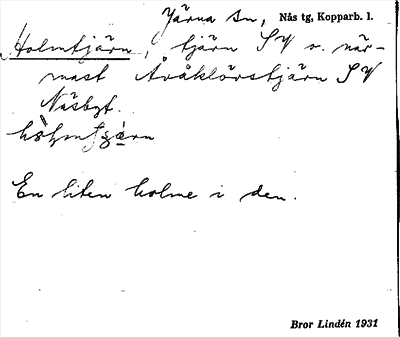 Järna sn, Nås tg, Kopparb. l.
Holmtjärn, tjärn SV o. när-
mast Avåklörstjärn SV
Näsbyt.
En liten holme i den.
Bror Lindén 1931